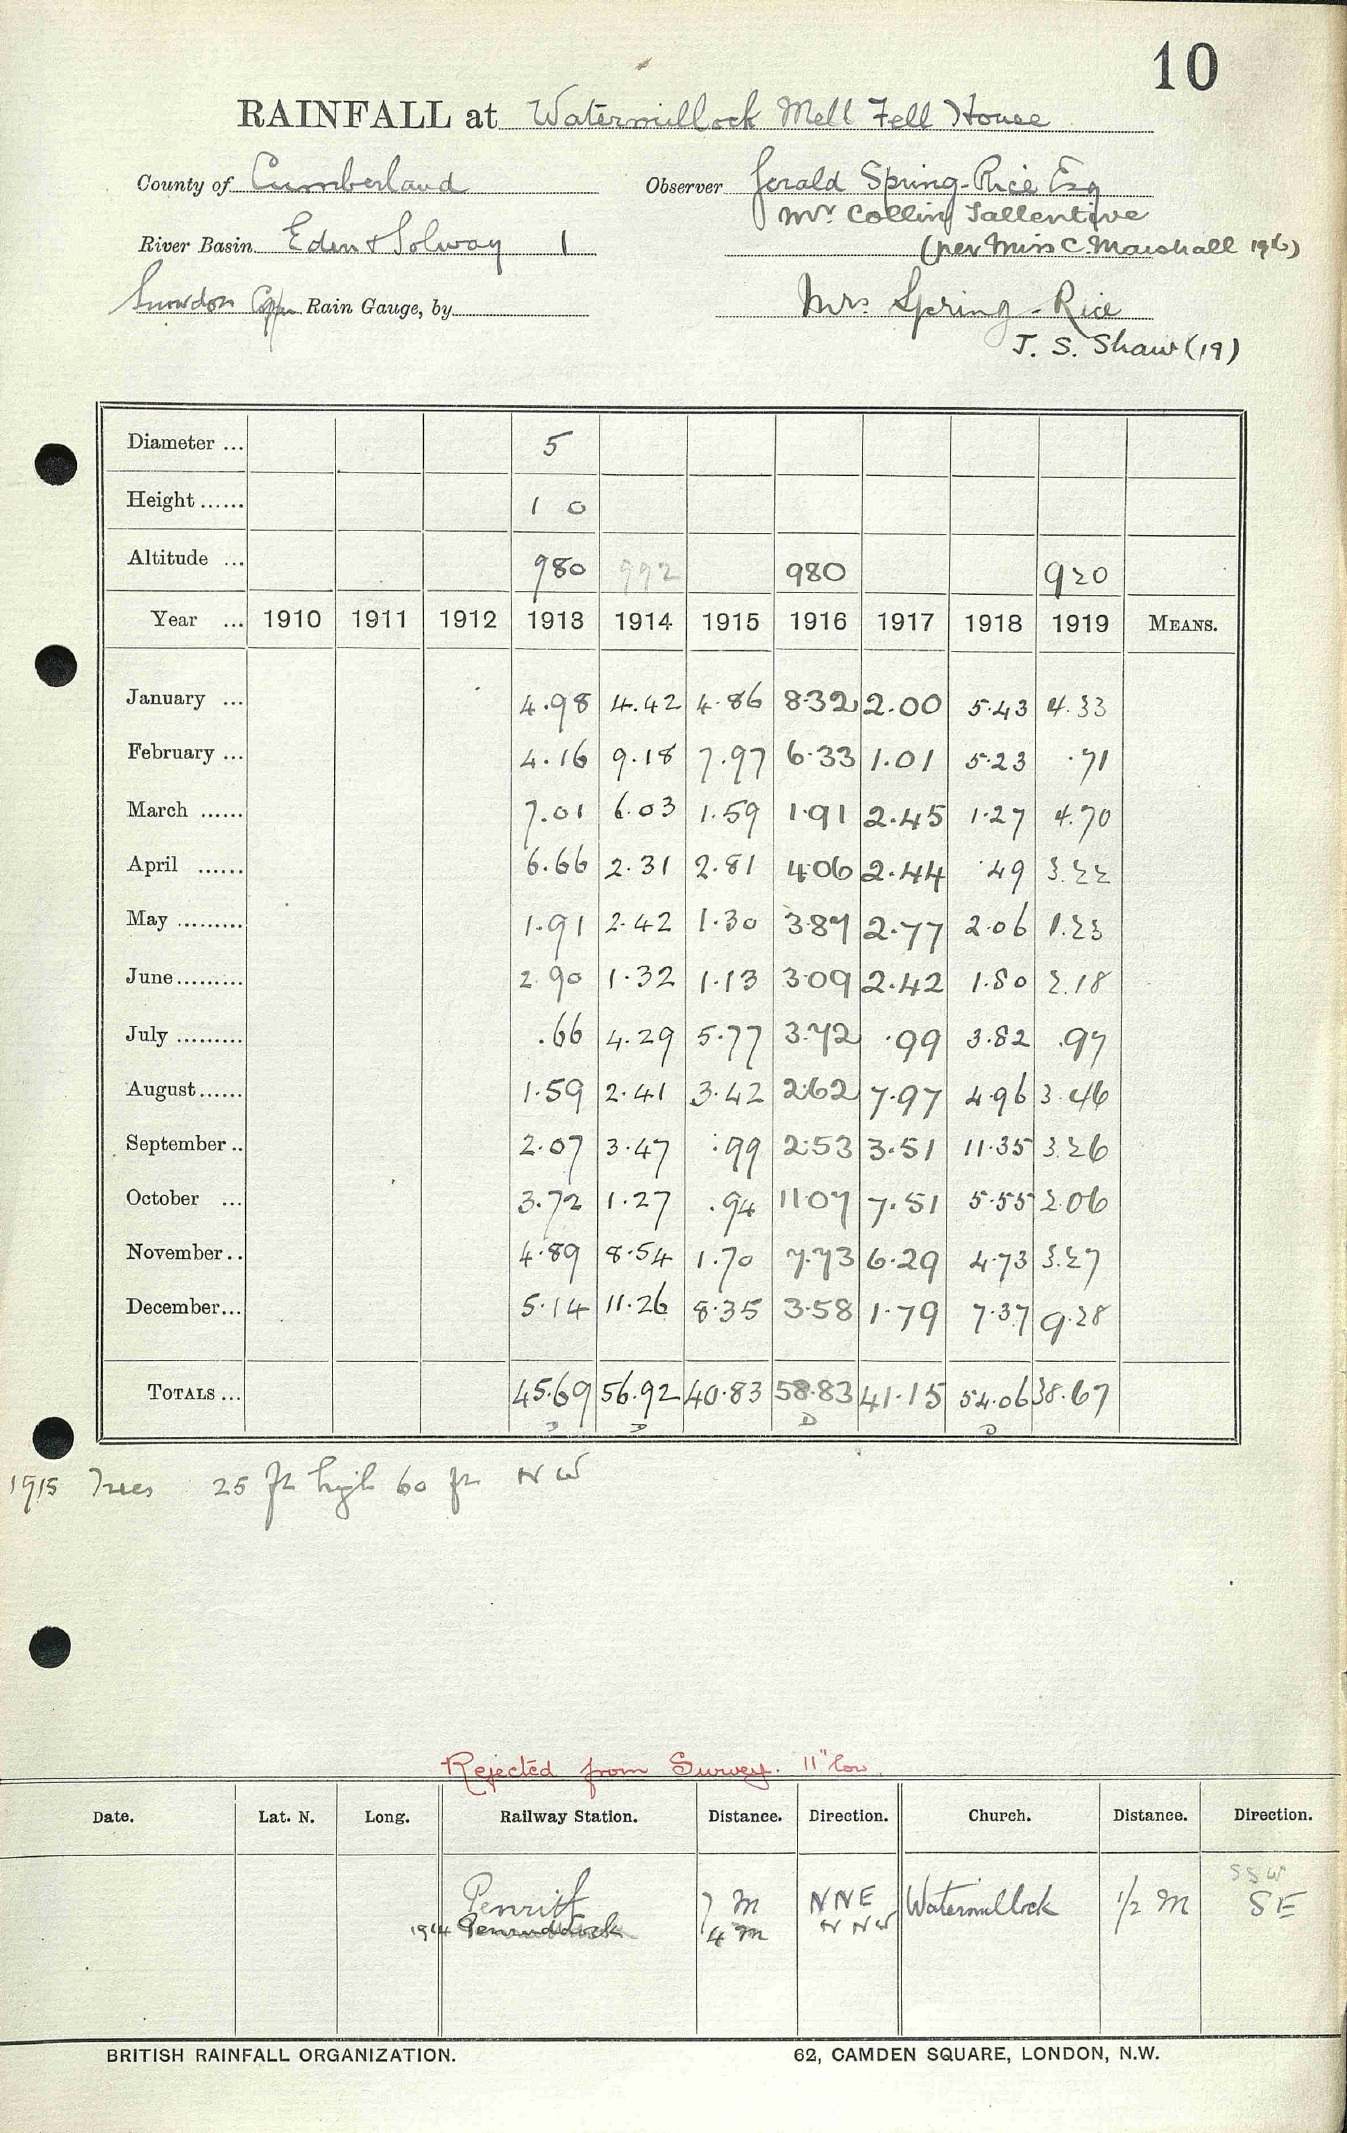 10
RAINFALL at Watermillock Mell Fell House
County of Cumberland Observer Gerald Spring-Rice Esq
Mr Collin Tallentire
River Basin Eden & Solway 1 (per Miss C. Marshall 1916)
Snowdon Copper Rain Gauge, by Mrs. Spring-Rice
J. S. Shaw (19)
Diameter ... 5
Height ...... 1 0
Altitude ... 980 992 980 920
Year ... 1910 1911 1912 1913 1914 1915 1916 1917 1918 1919 MEANS.
January ... 4.98 4.42 4.86 8.32 2.00 5.43 4.33
February ... 4.16 9.18 7.97 6.33 1.01 5.23 .71
March ...... 7.01 6.03 1.59 1.91 2.45 1.27 4.70
April ...... 6.66 2.31 2.81 4.06 2.44 .49 3.22
May ......... 1.91 2.42 1.30 3.87 2.77 2.06 1.23
June......... 2.90 1.32 1.13 3.09 2.42 1.80 2.18
July ......... .66 4.29 5.77 3.72 .99 3.82 .97
August...... 1.59 2.41 3.42 2.62 7.97 4.96 3.46
September.. 2.07 3.47 .99 2.53 3.51 11.35 3.26
October ... 3.72 1.27 .94 11.07 7.51 5.55 2.06
November.. 4.89 8.54 1.70 7.73 6.29 4.73 3.27
December... 5.14 11.26 8.35 3.58 1.79 7.37 9.28
TOTALS ... 45.69 56.92 40.83 58.83 41.15 54.06 38.67
D D D D
1915 Trees 25 ft high 60 ft NW
Rejected from Survey. 11" low.
Date. Lat. N. Long. Railway Station. Distance. Direction. Church. Distance. Direction.
SSW
Penrith 7 m NNE Watermillock 1/2 M SE
1914 Penruddock 4 m NNW
BRITISH RAINFALL ORGANIZATION. 62, CAMDEN SQUARE, LONDON, N.W.